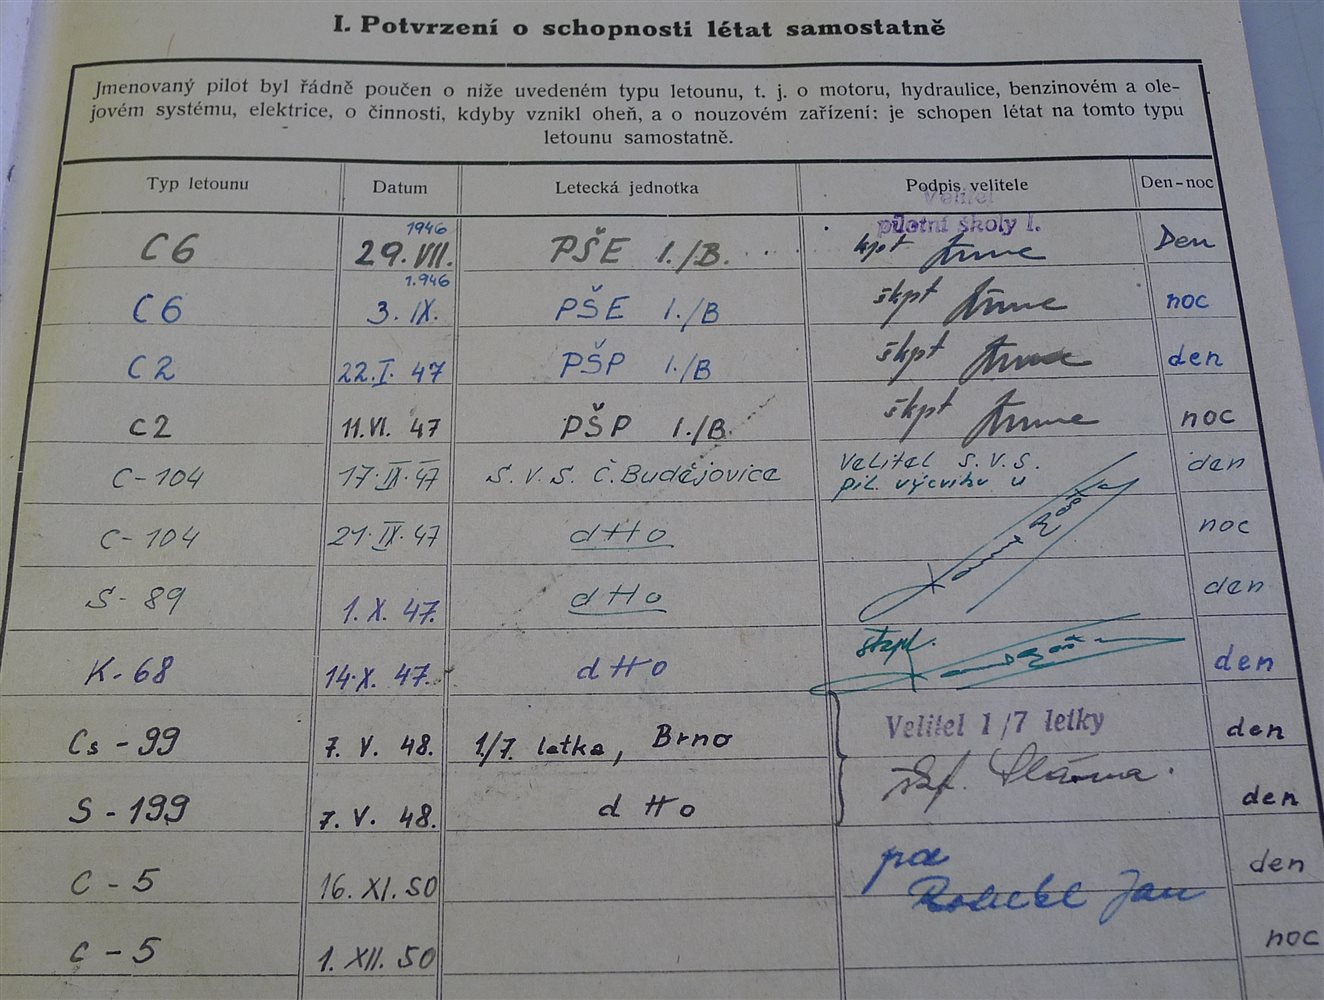 I. Potvrzení o schopnosti létat samostatně
Jmenovaný pilot byl řádně poučen o níže uvedeném typu letounu, t. j. o motoru, hydraulice, benzinovém a ole-
jovém systému, elektrice, o činnosti, kdyby vznikl oheň, a o nouzovém zařízení: je schopen létat na tomto typu
letounu samostatně.
Typ letounu Datum Letecká jednotka Podpis velitele Den-noc
Velitel
pilotní školy I.
1946
C6 29. VII. PŠE I./B. škpt Den
1.946
C6 3. IX. PŠE I./B škpt noc
C2 22. I. 47 PŠP I./B škpt den
C2 11. VI. 47 PŠP I./B. škpt noc
C-104 17. IX. 47 S. V. S. Č. Budějovice Velitel S. V. S. den
pil. výcviku u
C-104 21. IX. 47 dtto noc
S-89 1. X. 47. dtto den
štkpt.
K-68 14. X. 47. dtto den
Velitel 1/7 letky
Cs-99 7. V. 48. 1./7. letka, Brno den
S-199 7. V. 48. dtto den
C-5 16. XI. 50 den
Jan
C-5 1. XII. 50 noc